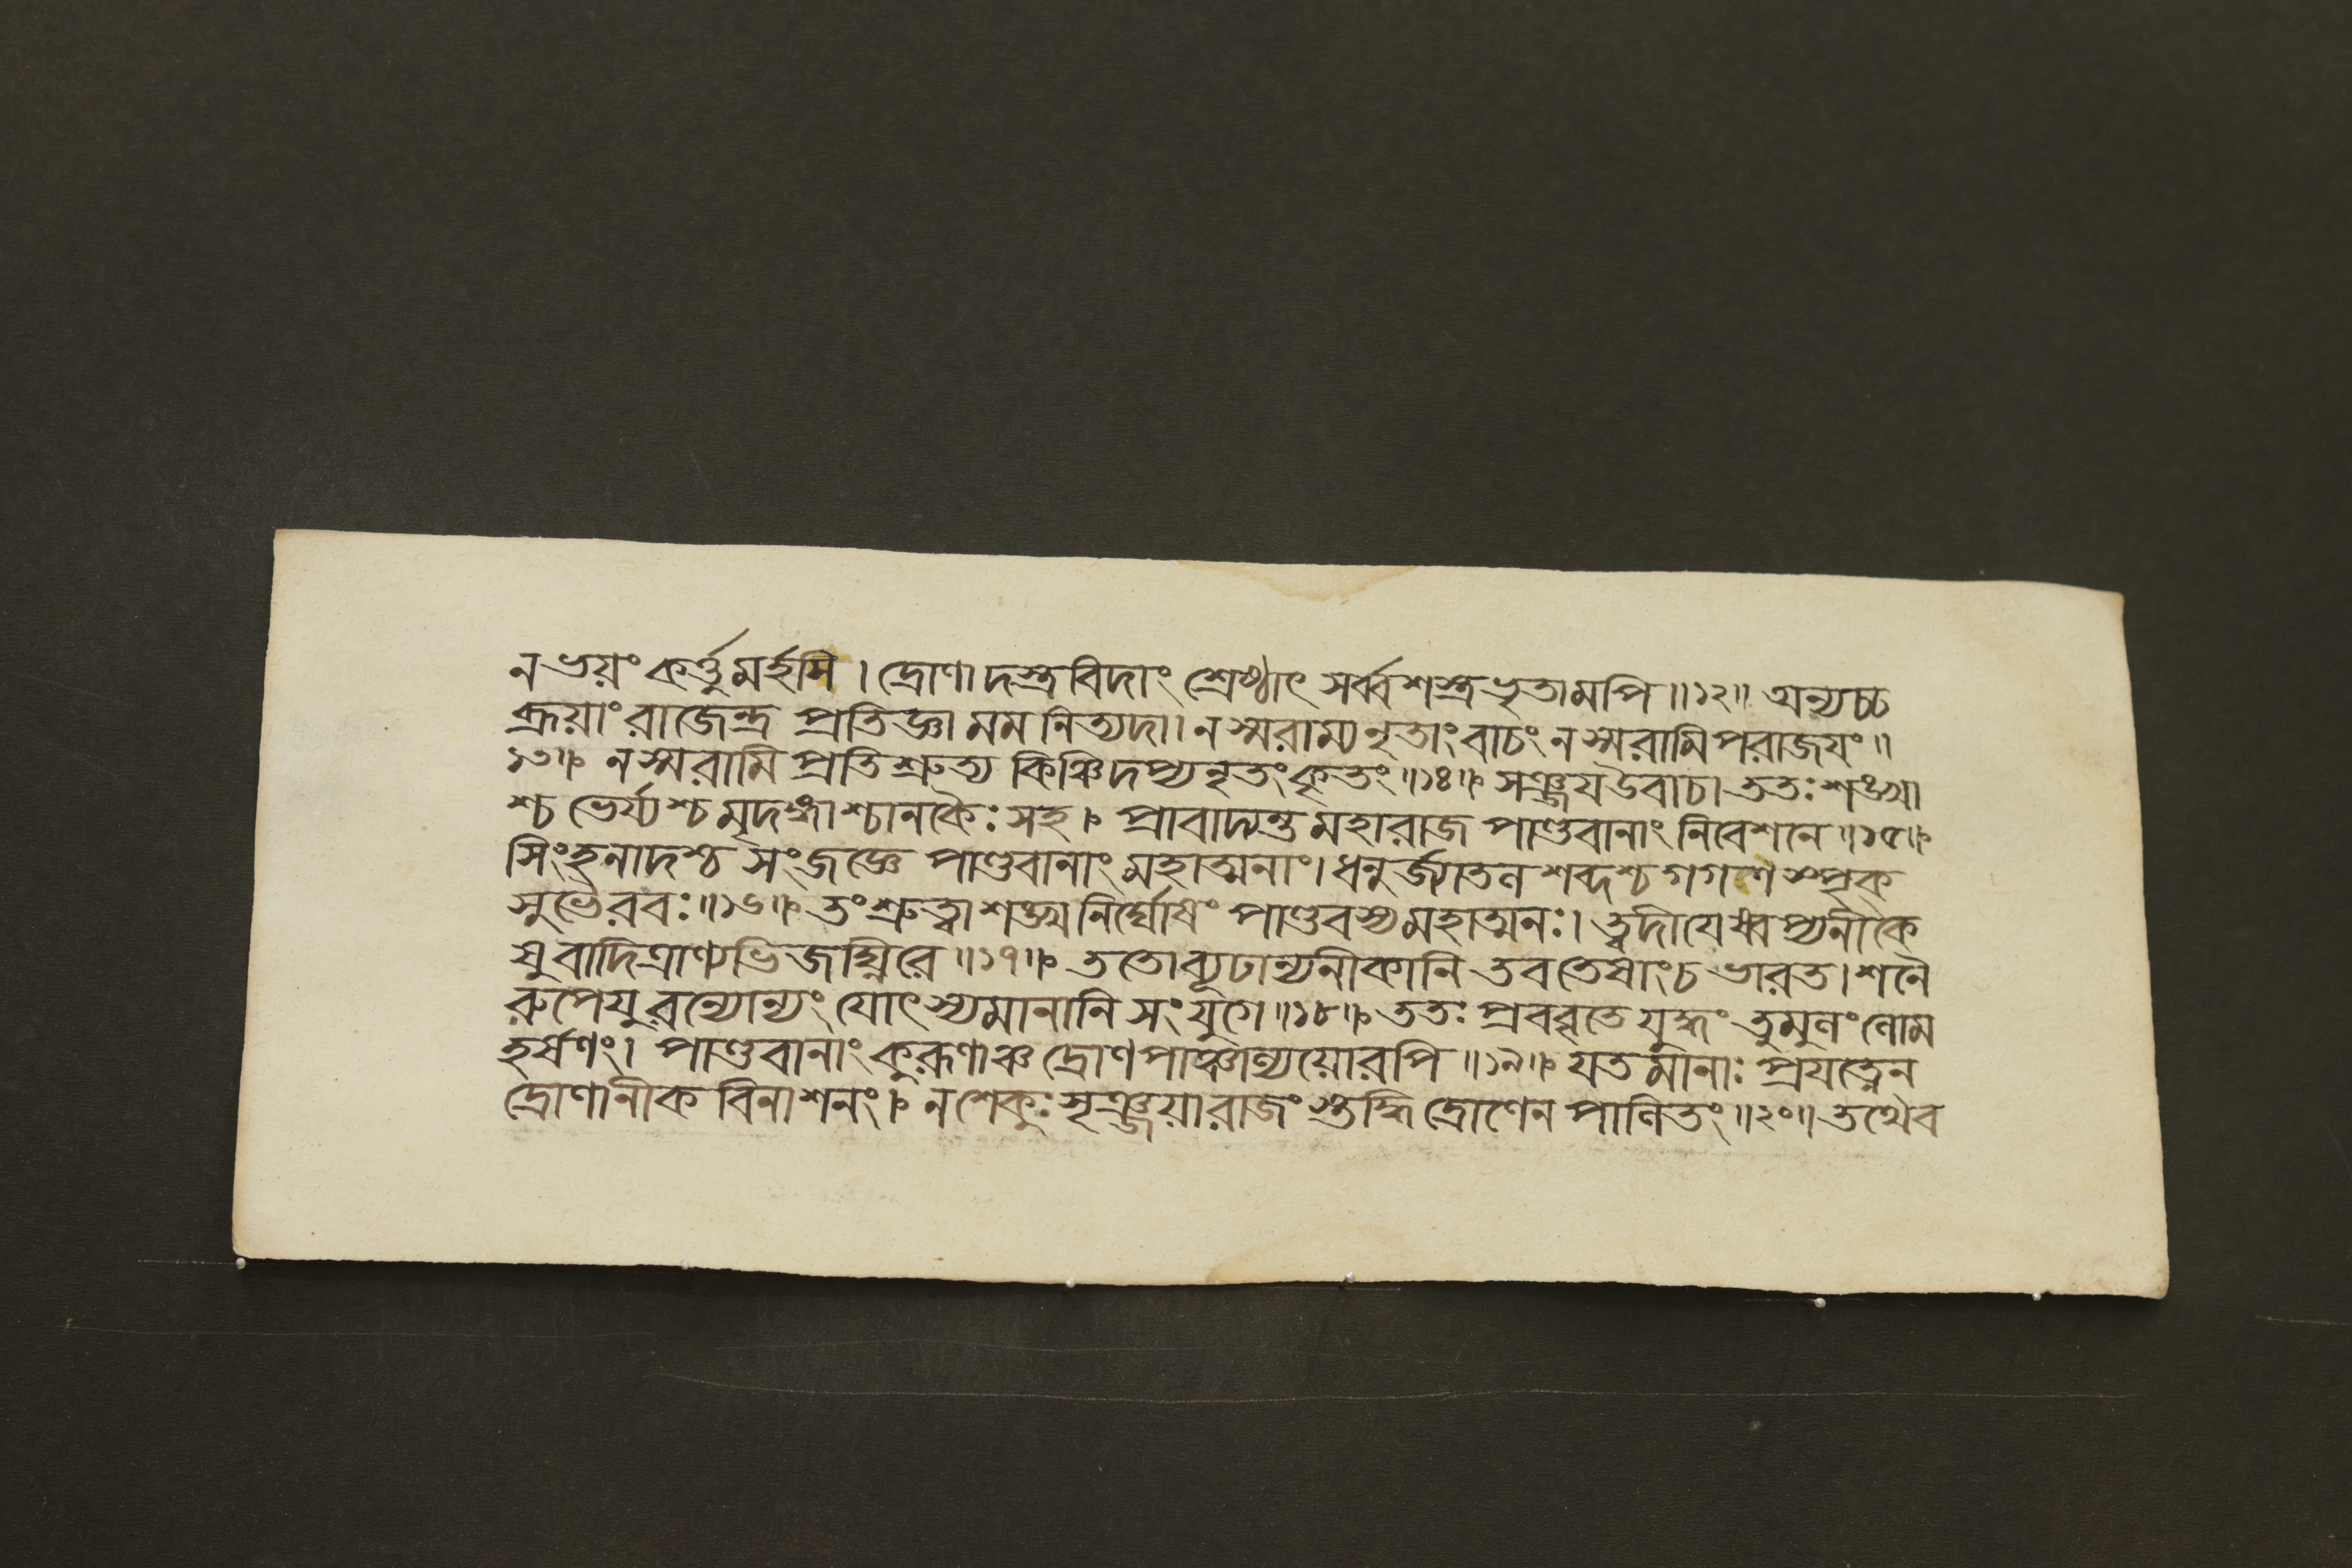 ন ভয়ং কর্ত্তুমর্হসি । দ্রোণাদস্ত্রবিদাং শ্রেষ্ঠাৎ সর্ব্বশস্ত্রভৃতামপি ॥১২॥ অন্যচ্চ
ব্রূয়াং রাজেন্দ্র প্রতিজ্ঞা মম নিত্যদা। ন স্মরাম্যনৃতাং বাচং ন স্মরামি পরাজযং ॥
১৩॥ ন স্মরামি প্রতিশ্রুত্য কিঞ্চিদপ্যনৃতং কৃতং ॥১৪॥ সঞ্জয উবাচ। ততঃ শঙ্খা
শ্চ ভের্য্যশ্চ মৃদঙ্গাশ্চানকৈঃ সহ । প্রাবাদ্যন্ত মহারাজ পাণ্ডবানাং নিবেশনে ॥১৫॥
সিংহনাদশ্চ সংজজ্ঞে পাণ্ডবানাং মহাত্মনাং। ধনুর্জ্যাতলশব্দশ্চ গগণস্পৃক্
সুভৈরবঃ ॥১৬॥ তং শ্রুত্বা শঙ্খনির্ঘোষং পাণ্ডবস্য মহাত্মনঃ। ত্বদীযেষ্বপ্যনীকে
ষু বাদিত্রাণ্যভিজঘ্নিরে ॥১৭॥ ততো ব্যূঢান্যনীকানি তব তেষাংচ ভারত। শনৈ
রুপেযুরন্যোন্যং যোৎস্যমানানি সংযুগে ॥১৮॥ ততঃ প্রববৃতে যুদ্ধং তুমুলং লোম
হর্ষণং। পাণ্ডবানাং কুরূণাঞ্চ দ্রোণপাঞ্চাল্যয়োরপি ॥১৯॥ যতমানাঃ প্রযত্নেন
দ্রোণানীকবিনাশনং । ন শেকুঃ সৃঞ্জয়া রাজংস্তদ্ধি দ্রোণেন পালিতং ॥২০॥ তথৈব